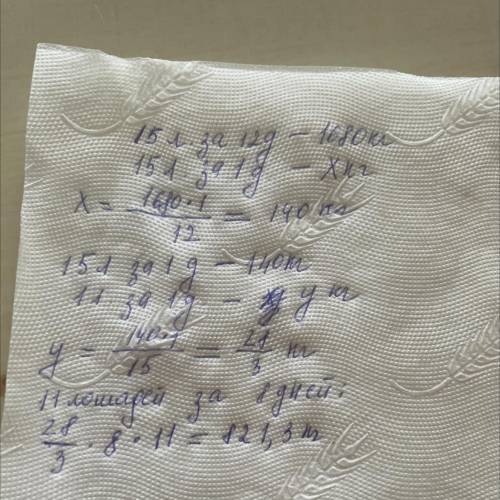 15 л. за 12д – 1680 кг
15 л за 1 д – x кг
x = 1680·1/12 = 140 кг
15 л за 1 д – 140 кг
1 л за 1 д – y кг
y = 140·1/15 = 28/3 кг
11 лошадей за 8 дней:
28/3 · 8 · 11 = 821,3 кг